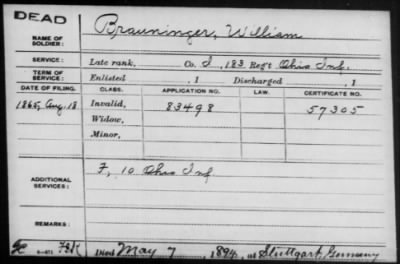 DEAD
NAME OF SOLDIER: Brauninger, William
SERVICE: Late rank, Co. I, 183 Reg't Ohio Inf.
TERM OF SERVICE: Enlisted , 1 Discharged , 1
DATE OF FILING. CLASS. APPLICATION NO. LAW. CERTIFICATE NO.
1865, Aug. 18 Invalid, 83498 57305
Widow,
Minor,
ADDITIONAL SERVICES: F, 10 Ohio Inf
REMARKS:
Died May 7, 1894, at Stuttgart, Germany